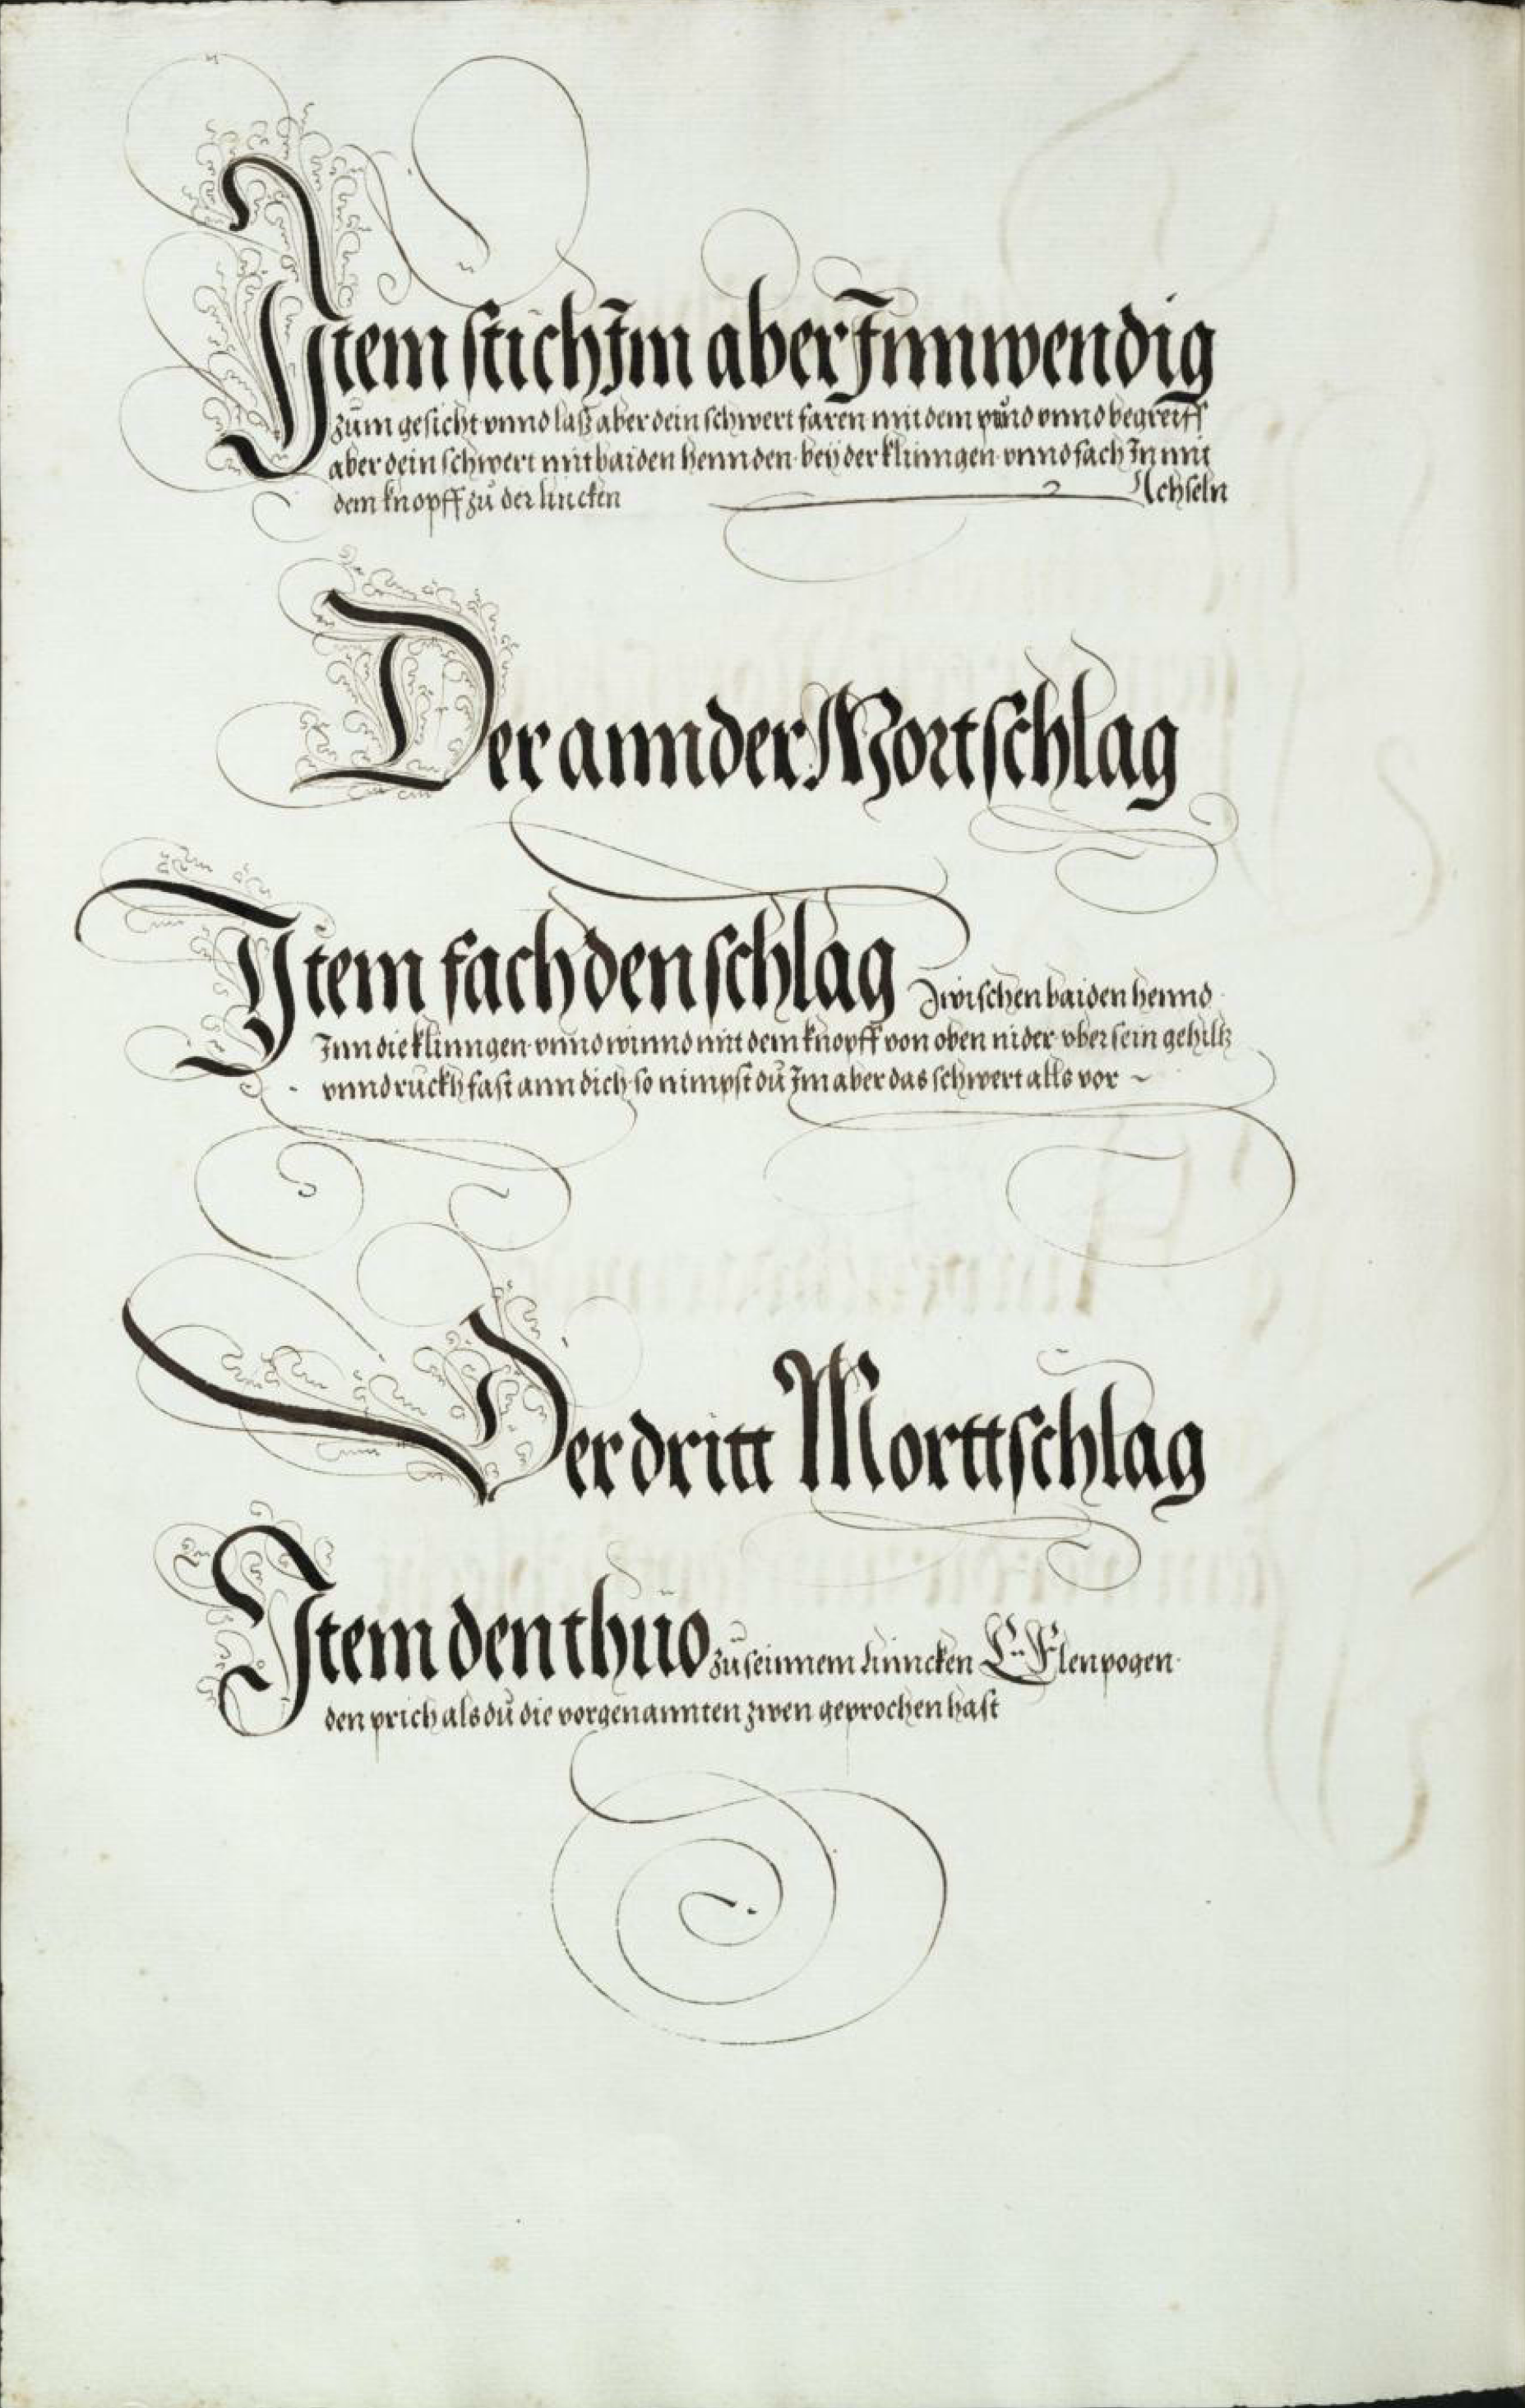 Item stich Im aber Innwendig
zům gesicht vnnd laß aber dein schwert faren mit dem pünd vnnd begreiff
aber dein schwert mit baiden hennden bey der klinngen vnnd fach In mit
dem knopff zů der lincken Achseln
Der annder Mortschlag
Item fach den schlag Zwischen baiden hennd
Inn die klinngen vnnd winnd mit dem knopff von oben nider vber sein gehiltz
vnnd ruckh fast ann dich so nimpst dů Im aber das schwert alls vor ~
Der dritt Morttschlag
Item den thüo zů seinnem linncken Elenpogen
den prich als dů die vorgenannten zwen geprochen hast